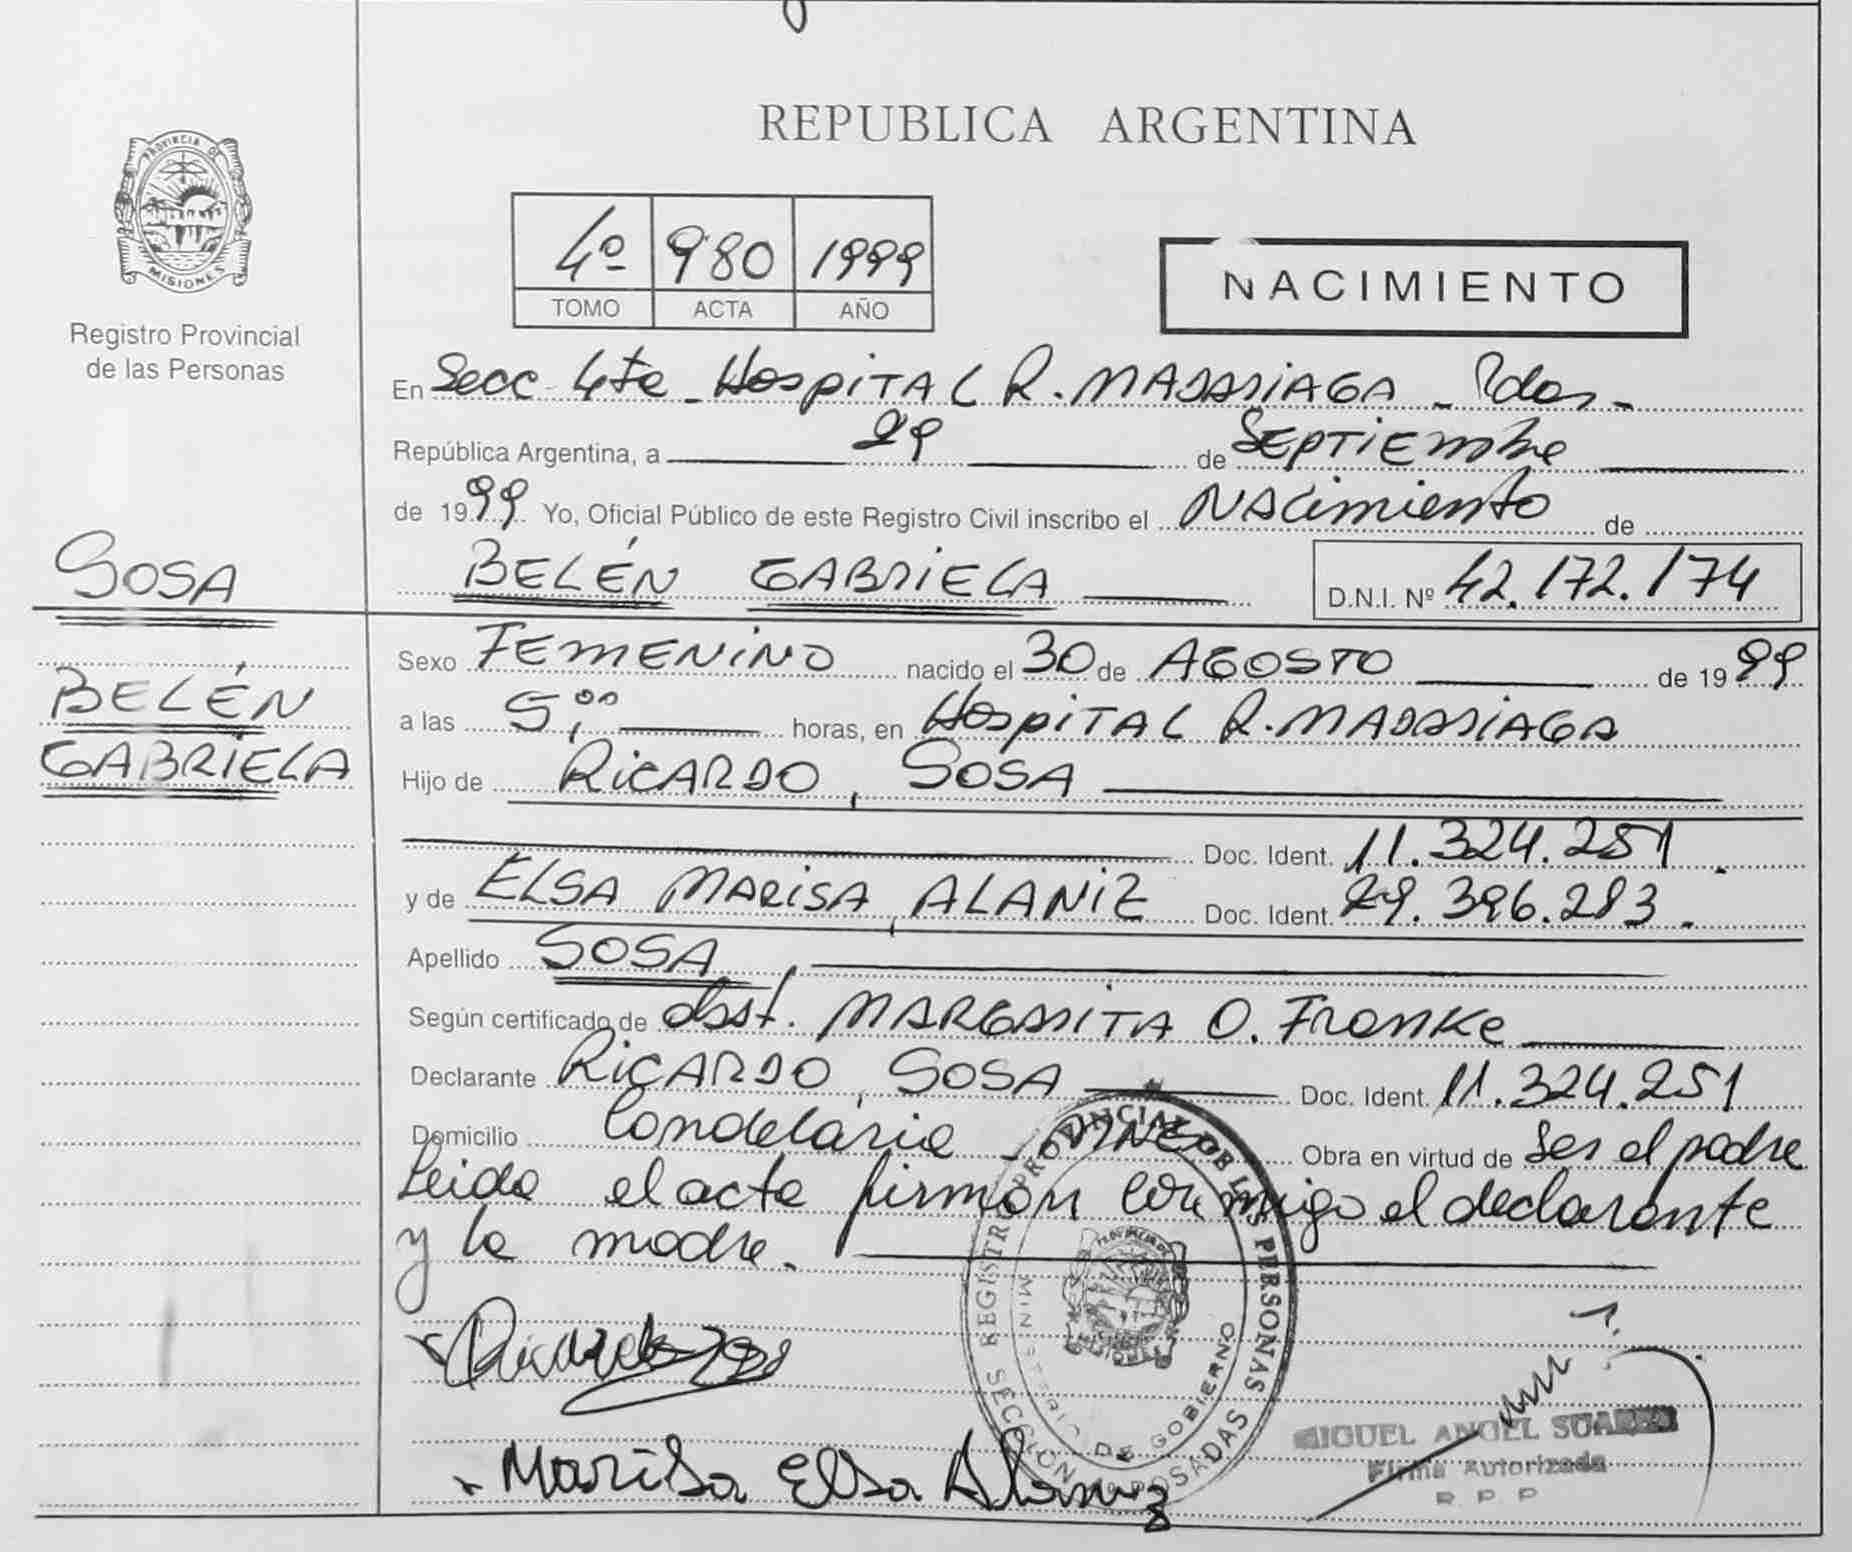 PROVINCIA DE
MISIONES
Registro Provincial
de las Personas
SOSA
BELÉN
GABRIELA
REPUBLICA ARGENTINA
4º 980 1999
TOMO ACTA AÑO
NACIMIENTO
En Secc 4ta - HOSPITAL R. MADARIAGA - Pdas -
República Argentina, a 29 de SEPTIEMBRE
de 1999 Yo, Oficial Público de este Registro Civil inscribo el NACimiento de
BELÉN GABRIELA D.N.I. Nº 42.172.174
Sexo FEMENINO nacido el 30 de AGOSTO de 1999
a las 5,00 horas, en HOSPITAL R. MADARIAGA
Hijo de RICARDO, SOSA
Doc. Ident. 11.324.251.
y de ELSA MARISA, ALANIZ Doc. Ident. 29.396.283.
Apellido SOSA,
Según certificado de obst. MARGARITA O. Franke
Declarante RICARDO, SOSA Doc. Ident. 11.324.251
Domicilio Candelaria - Obra en virtud de ser el padre
Leida el acta firman conmigo el declarante
y la madre.
REGISTRO PROVINCIAL DE LAS PERSONAS
MINISTERIO DE GOBIERNO
SECCIÓN POSADAS
Ricardo Sosa
Marisa Elsa Alaniz
MIGUEL ANGEL SUAREZ
Firma Autorizada
R. P. P